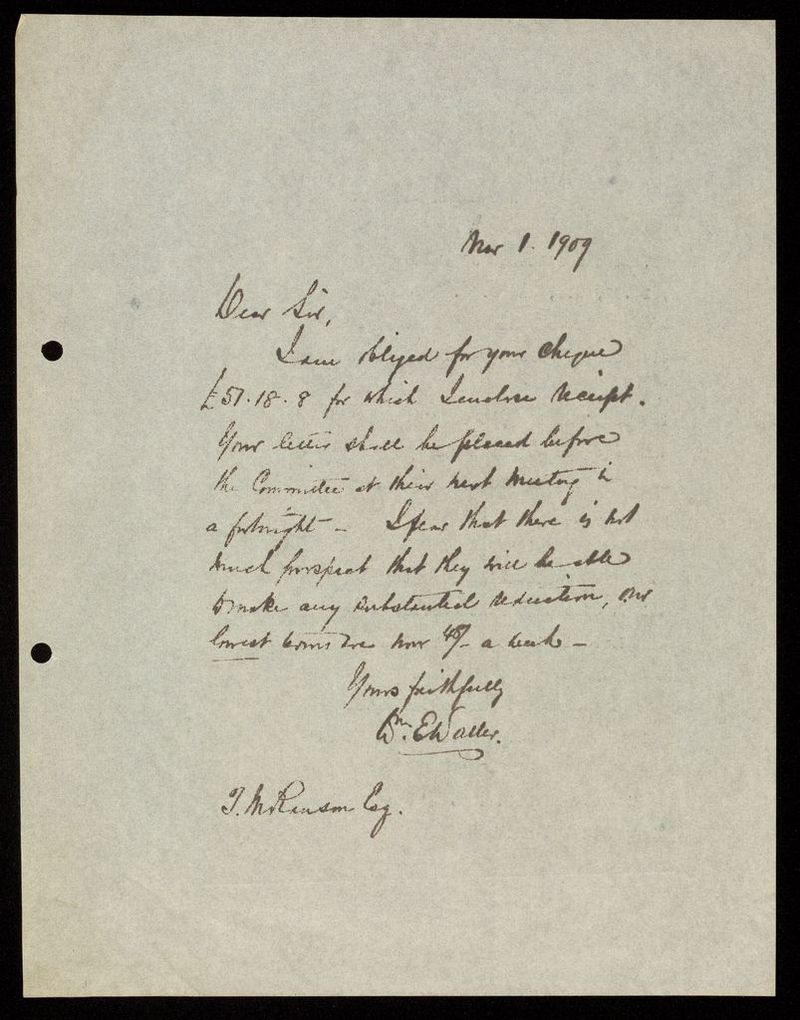 Mar 1. 1909
Dear Sir,
I am obliged for your cheque
£51.18.8 for which I enclose receipt.
Your letter shall be placed before
the Committee at their next meeting in
a fortnight – I fear that there is not
much prospect that they will be able
to make any substantial reduction, our
lowest terms are now /- a week –
Yours faithfully
Wm. E Waller.
T. Esq.